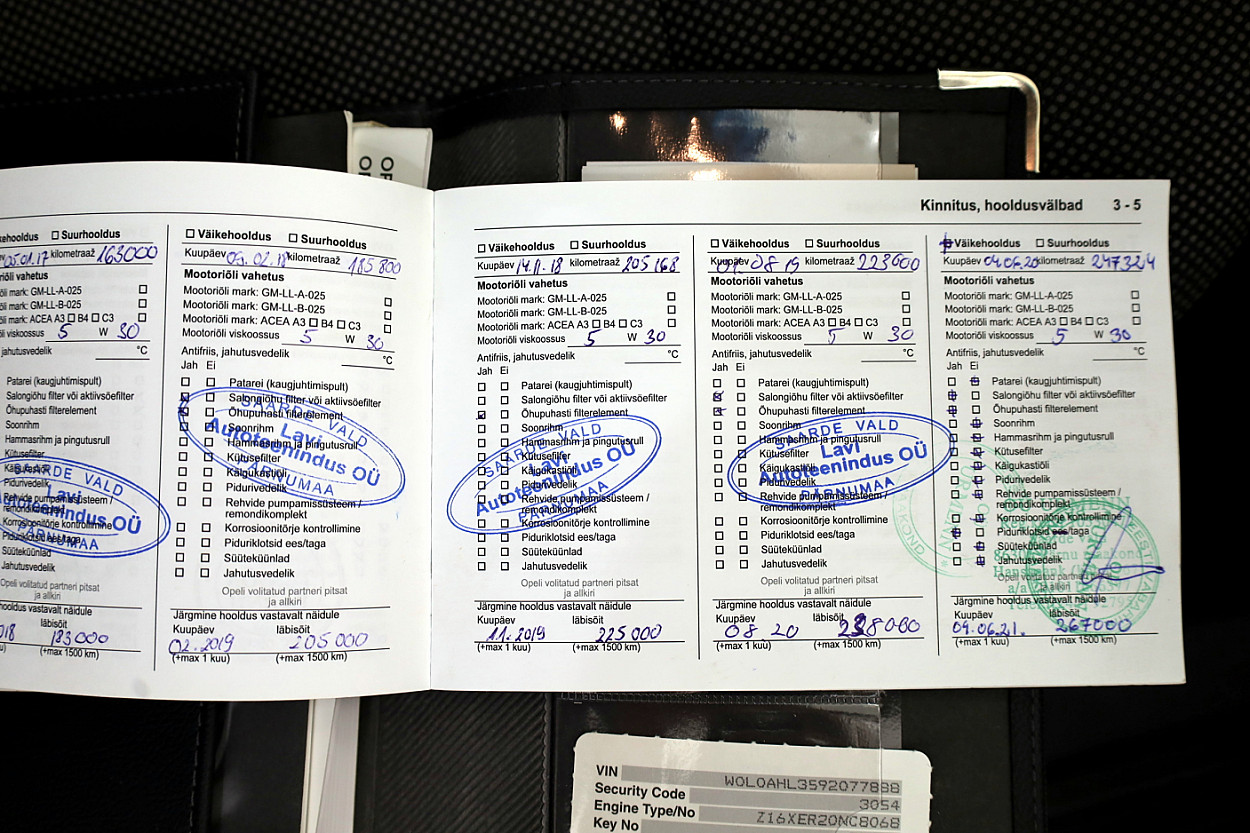 OP
OP
Kinnitus, hooldusvälbad 3 - 5
Suurhooldus
25.01.17 kilometraaž 163000
vahetus
mark: GM-LL-A-025
mark: GM-LL-B-025
mark: ACEA A3 B4 C3
viskoossus 5 W 30
jahutusvedelik °C
Patarei (kaugjuhtimispult)
Salongiõhu filter või aktiivsöefilter
Õhupuhasti filterelement
Soonrihm
Hammasrihm ja pingutusrull
Kütusefilter
Käigukastiõli
Pidurivedelik
Rehvide pumpamissüsteem /
remondikomplekt
Korrosioonitõrje kontrollimine
Piduriklotsid ees/taga
Süüteküünlad
Jahutusvedelik
SAARDE VALD
Lavi
Autoteenindus OÜ
PÄRNUMAA
Opeli volitatud partneri pitsat
ja allkiri
hooldus vastavalt näidule
läbisõit
183000
(+max 1500 km)
Väikehooldus Suurhooldus
Kuupäev 05.02.18 kilometraaž 185800
Mootoriõli vahetus
Mootoriõli mark: GM-LL-A-025
Mootoriõli mark: GM-LL-B-025
Mootoriõli mark: ACEA A3 B4 C3
Mootoriõli viskoossus 5 W 30
Antifriis, jahutusvedelik °C
Jah Ei
Patarei (kaugjuhtimispult)
Salongiõhu filter või aktiivsöefilter
Õhupuhasti filterelement
Soonrihm
Hammasrihm ja pingutusrull
Kütusefilter
Käigukastiõli
Pidurivedelik
Rehvide pumpamissüsteem /
remondikomplekt
Korrosioonitõrje kontrollimine
Piduriklotsid ees/taga
Süüteküünlad
Jahutusvedelik
SAARDE VALD
Lavi
Autoteenindus OÜ
PÄRNUMAA
Opeli volitatud partneri pitsat
ja allkiri
Järgmine hooldus vastavalt näidule
Kuupäev läbisõit
02.2019 205000
(+max 1 kuu) (+max 1500 km)
Väikehooldus Suurhooldus
Kuupäev 14.11.18 kilometraaž 205168
Mootoriõli vahetus
Mootoriõli mark: GM-LL-A-025
Mootoriõli mark: GM-LL-B-025
Mootoriõli mark: ACEA A3 B4 C3
Mootoriõli viskoossus 5 W 30
Antifriis, jahutusvedelik °C
Jah Ei
Patarei (kaugjuhtimispult)
Salongiõhu filter või aktiivsöefilter
Õhupuhasti filterelement
Soonrihm
Hammasrihm ja pingutusrull
Kütusefilter
Käigukastiõli
Pidurivedelik
Rehvide pumpamissüsteem /
remondikomplekt
Korrosioonitõrje kontrollimine
Piduriklotsid ees/taga
Süüteküünlad
Jahutusvedelik
SAARDE VALD
Lavi
Autoteenindus OÜ
PÄRNUMAA
Opeli volitatud partneri pitsat
ja allkiri
Järgmine hooldus vastavalt näidule
Kuupäev läbisõit
11.2019 225000
(+max 1 kuu) (+max 1500 km)
Väikehooldus Suurhooldus
Kuupäev 08 19 kilometraaž 223000
Mootoriõli vahetus
Mootoriõli mark: GM-LL-A-025
Mootoriõli mark: GM-LL-B-025
Mootoriõli mark: ACEA A3 B4 C3
Mootoriõli viskoossus 5 W 30
Antifriis, jahutusvedelik °C
Jah Ei
Patarei (kaugjuhtimispult)
Salongiõhu filter või aktiivsöefilter
Õhupuhasti filterelement
Soonrihm
Hammasrihm ja pingutusrull
Kütusefilter
Käigukastiõli
Pidurivedelik
Rehvide pumpamissüsteem /
remondikomplekt
Korrosioonitõrje kontrollimine
Piduriklotsid ees/taga
Süüteküünlad
Jahutusvedelik
SAARDE VALD
Lavi
Autoteenindus OÜ
PÄRNUMAA
Opeli volitatud partneri pitsat
ja allkiri
Järgmine hooldus vastavalt näidule
Kuupäev läbisõit
08 20
(+max 1 kuu) (+max 1500 km)
Väikehooldus Suurhooldus
Kuupäev 04.06.20 kilometraaž 247324
Mootoriõli vahetus
Mootoriõli mark: GM-LL-A-025
Mootoriõli mark: GM-LL-B-025
Mootoriõli mark: ACEA A3 B4 C3
Mootoriõli viskoossus 5 W 30
Antifriis, jahutusvedelik °C
Jah Ei
Patarei (kaugjuhtimispult)
Salongiõhu filter või aktiivsöefilter
Õhupuhasti filterelement
Soonrihm
Hammasrihm ja pingutusrull
Kütusefilter
Käigukastiõli
Pidurivedelik
Rehvide pumpamissüsteem /
remondikomplekt
Korrosioonitõrje kontrollimine
Piduriklotsid ees/taga
Süüteküünlad
Jahutusvedelik
Opeli volitatud partneri
ja allkiri
Järgmine hooldus vastavalt näidule
Kuupäev läbisõit
04.06.21. 267000
(+max 1 kuu) (+max 1500 km)
VIN W0L0AHL3592077888
Security Code 3054
Engine Type/No Z16XER20NC8068
Key No